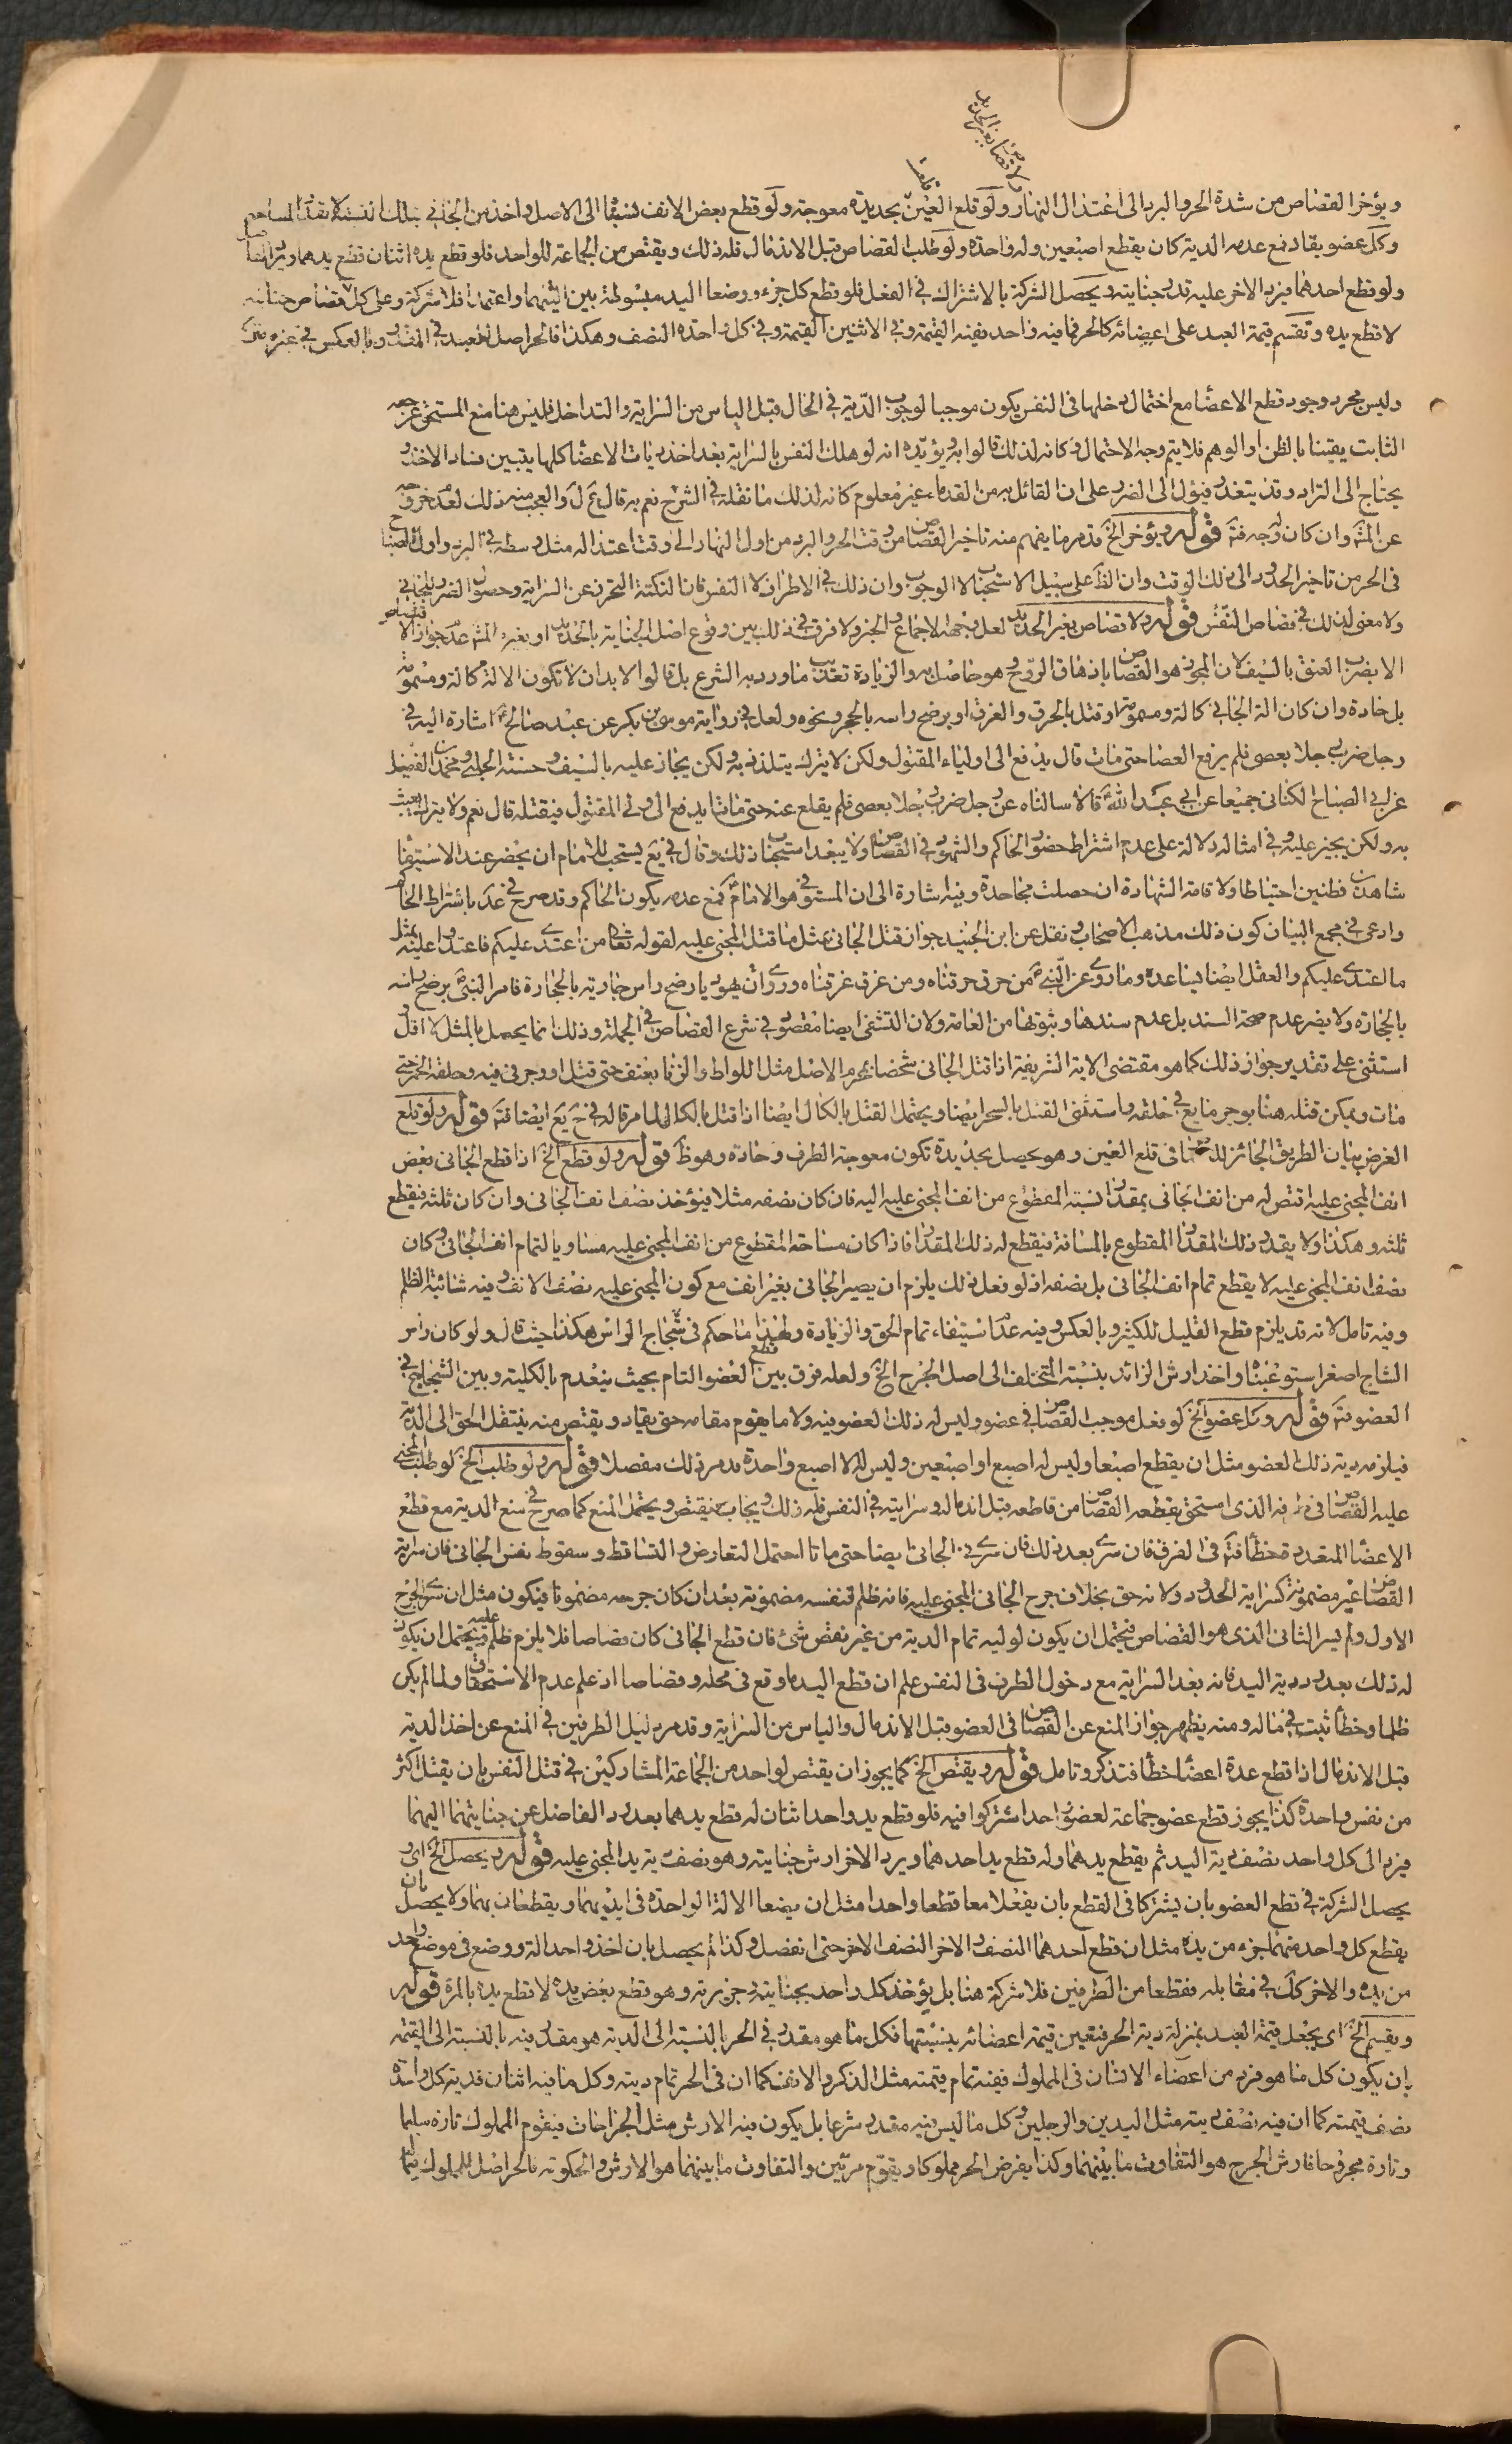 ولا قصاص بغير الحديد
ويؤخر القصاص من شدة الحر والبرد الى اعتدال النهار ولو قلع العين بحديدة معوجة ولو قطع بعض الانف نسبنا الى الاصل واخذ من الجاني بتلك النسبة لا بقدر المساحة
وكل عضو يقاد فمع عدمه الدية كان يقطع اصبعين وله واحدة ولو طلب القصاص قبل الاندمال فله ذلك ويقتص من الجماعة للواحد فلو قطع يده اثنان قطع يدهما ورد الفاضل
ولو قطع احدهما فيرد الاخر عليه قدر جنايته ويحصل الشركة بالاشتراك في الفعل فلو قطع كل جزء ووضعا اليد مبسوطة بين اليتهما واعتمدا فلا شركة وعلى كل قصاص جنايته
لا قطع يده وتقسم قيمة العبد على اعضائه كالحر فما فيه واحد ففيه القيمة وفي الاثنين القيمة وفي كل واحدة النصف وهكذا فالحر اصل للعبد في المقدر وبالعكس في غيره
وليس مجرد وجود قطع الاعضا مع احتمال دخلها في النفس يكون موجبا لوجوب الدية في الحال قبل الياس من السراية والتداخل فليس هنا منع المستحق عن حقه
الثابت يقينا بالظن او الوهم فلا يتم وجه الاحتمال وكانه لذلك قالوا به ويؤيده انه لو هلك النفس بالسراية بعد اخذ ديات الاعضا كلها يتبين فساد الاخذ
يحتاج الى التراد وقد يتعذر فيؤل الى الضرر على ان القائل به من القدماء غير معلوم كانه لذلك ما نقله في الشرح نعم به قال
عن المتن وان كان له وجه فتـ قوله ويؤخر الخ قد مر ما يفهم منه تاخير القصاص من وقت الحر والبرد من اول النهار الى وقت اعتداله مثل وسطه في البرد واوله الصباح
في الحر من تاخير الحدود الى ذلك الوقت وان الظ على سبيل الاستحباب لا الوجوب وان ذلك في الاطراف لا النفس فان النكتة التحرز عن السراية وحصول الضرر للجاني
ولا معنى لذلك في قصاص النفس قوله ولا قصاص بغير الحديد لعل وجهه الاجماع والخبر ولا فرق في ذلك بين وقوع اصل الجناية بالحديد او بغيره
الا بضرب العنق بالسيف لان المجوز هو القصاص باذهاق الروح وهو حاصل به والزيادة تعذيب ما ورد به الشرع بل قالوا لا بد ان لا تكون الالة كالة ومسمومة
بل حادة وان كان الة الجاني كالة ومسمومة او قتل بالحرق والغرق او برضح راسه بالحجر ونحوه ولعل في رواية موسى بن بكر عن عبد صالح اشارة اليه في
رجل ضرب رجلا بعصى فلم يرفع العصا حتى مات قال يدفع الى اولياء المقتول ولكن لا يترك يتلذذ به ولكن يجاز عليه بالسيف وحسنة الحلبي ومحمد بن الفضيل
عن ابي الصباح الكناني جميعا عن ابي عبد الله قالا سالناه عن رجل ضرب رجلا بعصى فلم يقلع عنه حتى مات ايدفع الى ولي المقتول فيقتله قال نعم ولا يترك يعبث
به ولكن يجيز عليه وفي امثاله دلالة على عدم اشتراط حضور الحاكم والشهود في القصاص ولا يبعد استحباب ذلك وقال في يع يستحب للامام ان يحضر عند الاستيفاء
شاهدين فطنين احتياطا ولاقامة الشهادة ان حصلت مجاحدة وفيه اشارة الى ان المستوفي هو الامام فمع عدمه يكون الحاكم وقد صرح في عد باشتراط الحاكم
وادعى في مجمع البيان كون ذلك مذهب الاصحاب ونقل عن ابن الجنيد جواز قتل الجاني بمثل ما قتل المجني عليه لقوله تعالى من اعتدى عليكم فاعتدوا عليه بمثل
ما اعتدى عليكم والعقل ايضا يساعده وما روى عن النبي من حرق حرقناه ومن غرق غرقناه وروى ان يهوديا رضح راس جارية بالحجارة فامر النبي برضح راسه
بالحجارة ولا يضر عدم صحة السند بل عدم سندها وثبوتها من العامة ولان التشفي ايضا مقصود في شرع القصاص في الجملة وذلك انما يحصل بالمثل لا اقل
استثنى على تقدير جواز ذلك كما هو مقتضى الاية الشريفة اذا قتل الجاني شخصا بمحرم الاصل مثل اللواط والزنا بعنف حتى قتل او وجر في فيه وحلقه الخمر حتى
مات ويمكن قتله هنا بوجر مايع في حلقه واستثنى القتل بالسحر ايضا ويحتمل القتل بالكال ايضا اذا قتل بالكال لما مر قاله في ح يع ايضا فتـ قوله ولو قلع
الغرض بيان الطريق الجائز للقصاص في قلع العين وهو يحصل بحديدة تكون معوجة الطرف وحادة وهو ظ قوله ولو قطع الخ اذا قطع الجاني بعض
انف المجني عليه اقتص له من انف الجاني بمقدار نسبة المقطوع من انف المجني عليه اليه فان كان نصفه مثلا فيؤخذ نصف انف الجاني وان كان ثلثه فيقطع
ثلثه وهكذا ولا يقدر ذلك المقدار المقطوع بالمسافة فيقطع له ذلك المقدار فاذا كان مساحة المقطوع من انف المجني عليه مساويا لتمام انف الجاني وكان
نصف انف المجني عليه لا يقطع تمام انف الجاني بل نصفه اذ لو فعل ذلك يلزم ان يصير الجاني بغير انف مع كون المجني عليه نصف الانف وفيه شائبة الظلم
وفيه تامل لانه قد يلزم قطع القليل للكثير وبالعكس وفيه عدم استيفاء تمام الحق والزيادة ولهذا ما حكم في شجاج الراس هكذا حيث قال ولو كان راس
الشاج اصغر استوعبناه واخذ ارش الزائد بنسبة المتخلف الى اصل الجرح الخ ولعله فرق بين قطع العضو التام بحيث ينعدم بالكلية وبين الشجاج في
العضو فتـ قوله وكل عضو الخ لو فعل موجب القصاص في عضو وليس له ذلك العضو فيه ولا ما يقوم مقامه حتى يقاد ويقتص منه ينتقل الحق الى الدية
فيلزمه دية ذلك العضو مثل ان يقطع اصبعا وليس له اصبع او اصبعين وليس له الا اصبع واحدة قد مر ذلك مفصلا قوله ولو طلب الخ لو طلب المجني
عليه القصاص في طرفه الذي استحق بقطعه القصاص من قاطعه قبل اندماله وسرايته في النفس فله ذلك ويجاب فيقتص ويحتمل المنع كما صرح في منع الدية مع قطع
الاعضا المتعددة خطأ فتـ في الفرق فان سرى بعد ذلك فان سرى في الجاني ايضا حتى ماتا احتمل التعارض والتساقط وسقوط نفس الجاني فان سراية
القصاص غير مضمونة كسراية الحدود ولانه حق بخلاف جرح الجاني المجني عليه فانه ظلم فنفسه مضمونة بعد ان كان جرحه مضمونا فيكون مثل ان سرى الجرح
الاول ولم يسر الثاني الذي هو القصاص فيحتمل ان يكون لوليه تمام الدية من غير نقص شئ فان قطع الجاني كان قصاصا فلا يلزم ظلم عليه ويحتمل ان يكون
له ذلك بعد رد دية اليد فانه بعد السراية مع دخول الطرف في النفس علم ان قطع اليد ما وقع في محله وقصاصا اذ علم عدم الاستحقاق ولما لم يكن
ظلما وخطأ ثبت في ماله ومنه يظهر جواز المنع عن القصاص في العضو قبل الاندمال والياس من السراية وقد مر دليل الطرفين في المنع عن اخذ الدية
قبل الاندمال اذا قطع عدة اعضا خطأ فتذكر وتامل قوله ويقتص الخ كما يجوز ان يقتص لواحد من الجماعة المشاركين في قتل النفس بان يقتل اكثر
من نفس واحدة كذا يجوز قطع عضو جماعة لعضو واحد اشتركوا فيه فلو قطع يد واحد اثنان له قطع يدهما بعد رد الفاضل عن جنايتهما اليهما
فيرد الى كل واحد نصف دية اليد ثم يقطع يدهما وله قطع يد احدهما ويرد الاخر ارش جنايته وهو نصف دية يد المجني عليه قوله ويحصل الخ اى
يحصل الشركة في قطع العضو بان يشتركا في القطع بان يفعلا معا قطعا واحدا مثل ان يضعا الالة الواحدة في ايديهما ويقطعان بهما ولا يحصل بان
يقطع كل واحد منهما جزء من يده مثل ان قطع احدهما النصف والاخر النصف الاخر حتى انفصل وكذا لم يحصل بان اخذ واحد الة ووضع في موضع واحد
من يده والاخر كك في مقابله فقطعا من الطرفين فلا شركة هنا بل يؤخذ كل واحد بجنايته وجزيرته وهو قطع بعض يده لا قطع يده بالمرة قوله
ويقسم الخ اى يجعل قيمة العبد بمنزلة دية الحر فتعين قيمة اعضائه بنسبتها فكل ما هو مقدر في الحر بالنسبة الى الدية هو مقدر فيه بالنسبة الى القيمة
بان يكون كل ما هو فرد من اعضاء الانسان في المملوك ففيه تمام قيمته مثل الذكر والانف كما ان في الحر تمام ديته وكل ما فيه اثنان فدية كل واحدة
نصف قيمته كما ان فيه نصف ديته مثل اليدين والرجلين وكل ما ليس فيه مقدر شرعا بل يكون فيه الارش مثل الجراحات فيقوم المملوك تارة سليما
وتارة مجروحا فارش الجرح هو التفاوت ما بينهما وكذا يفرض الحر مملوكا ويقوم مرتين والتفاوت ما بينهما هو الارش والحكومة فالحر اصل للمملوك فيما